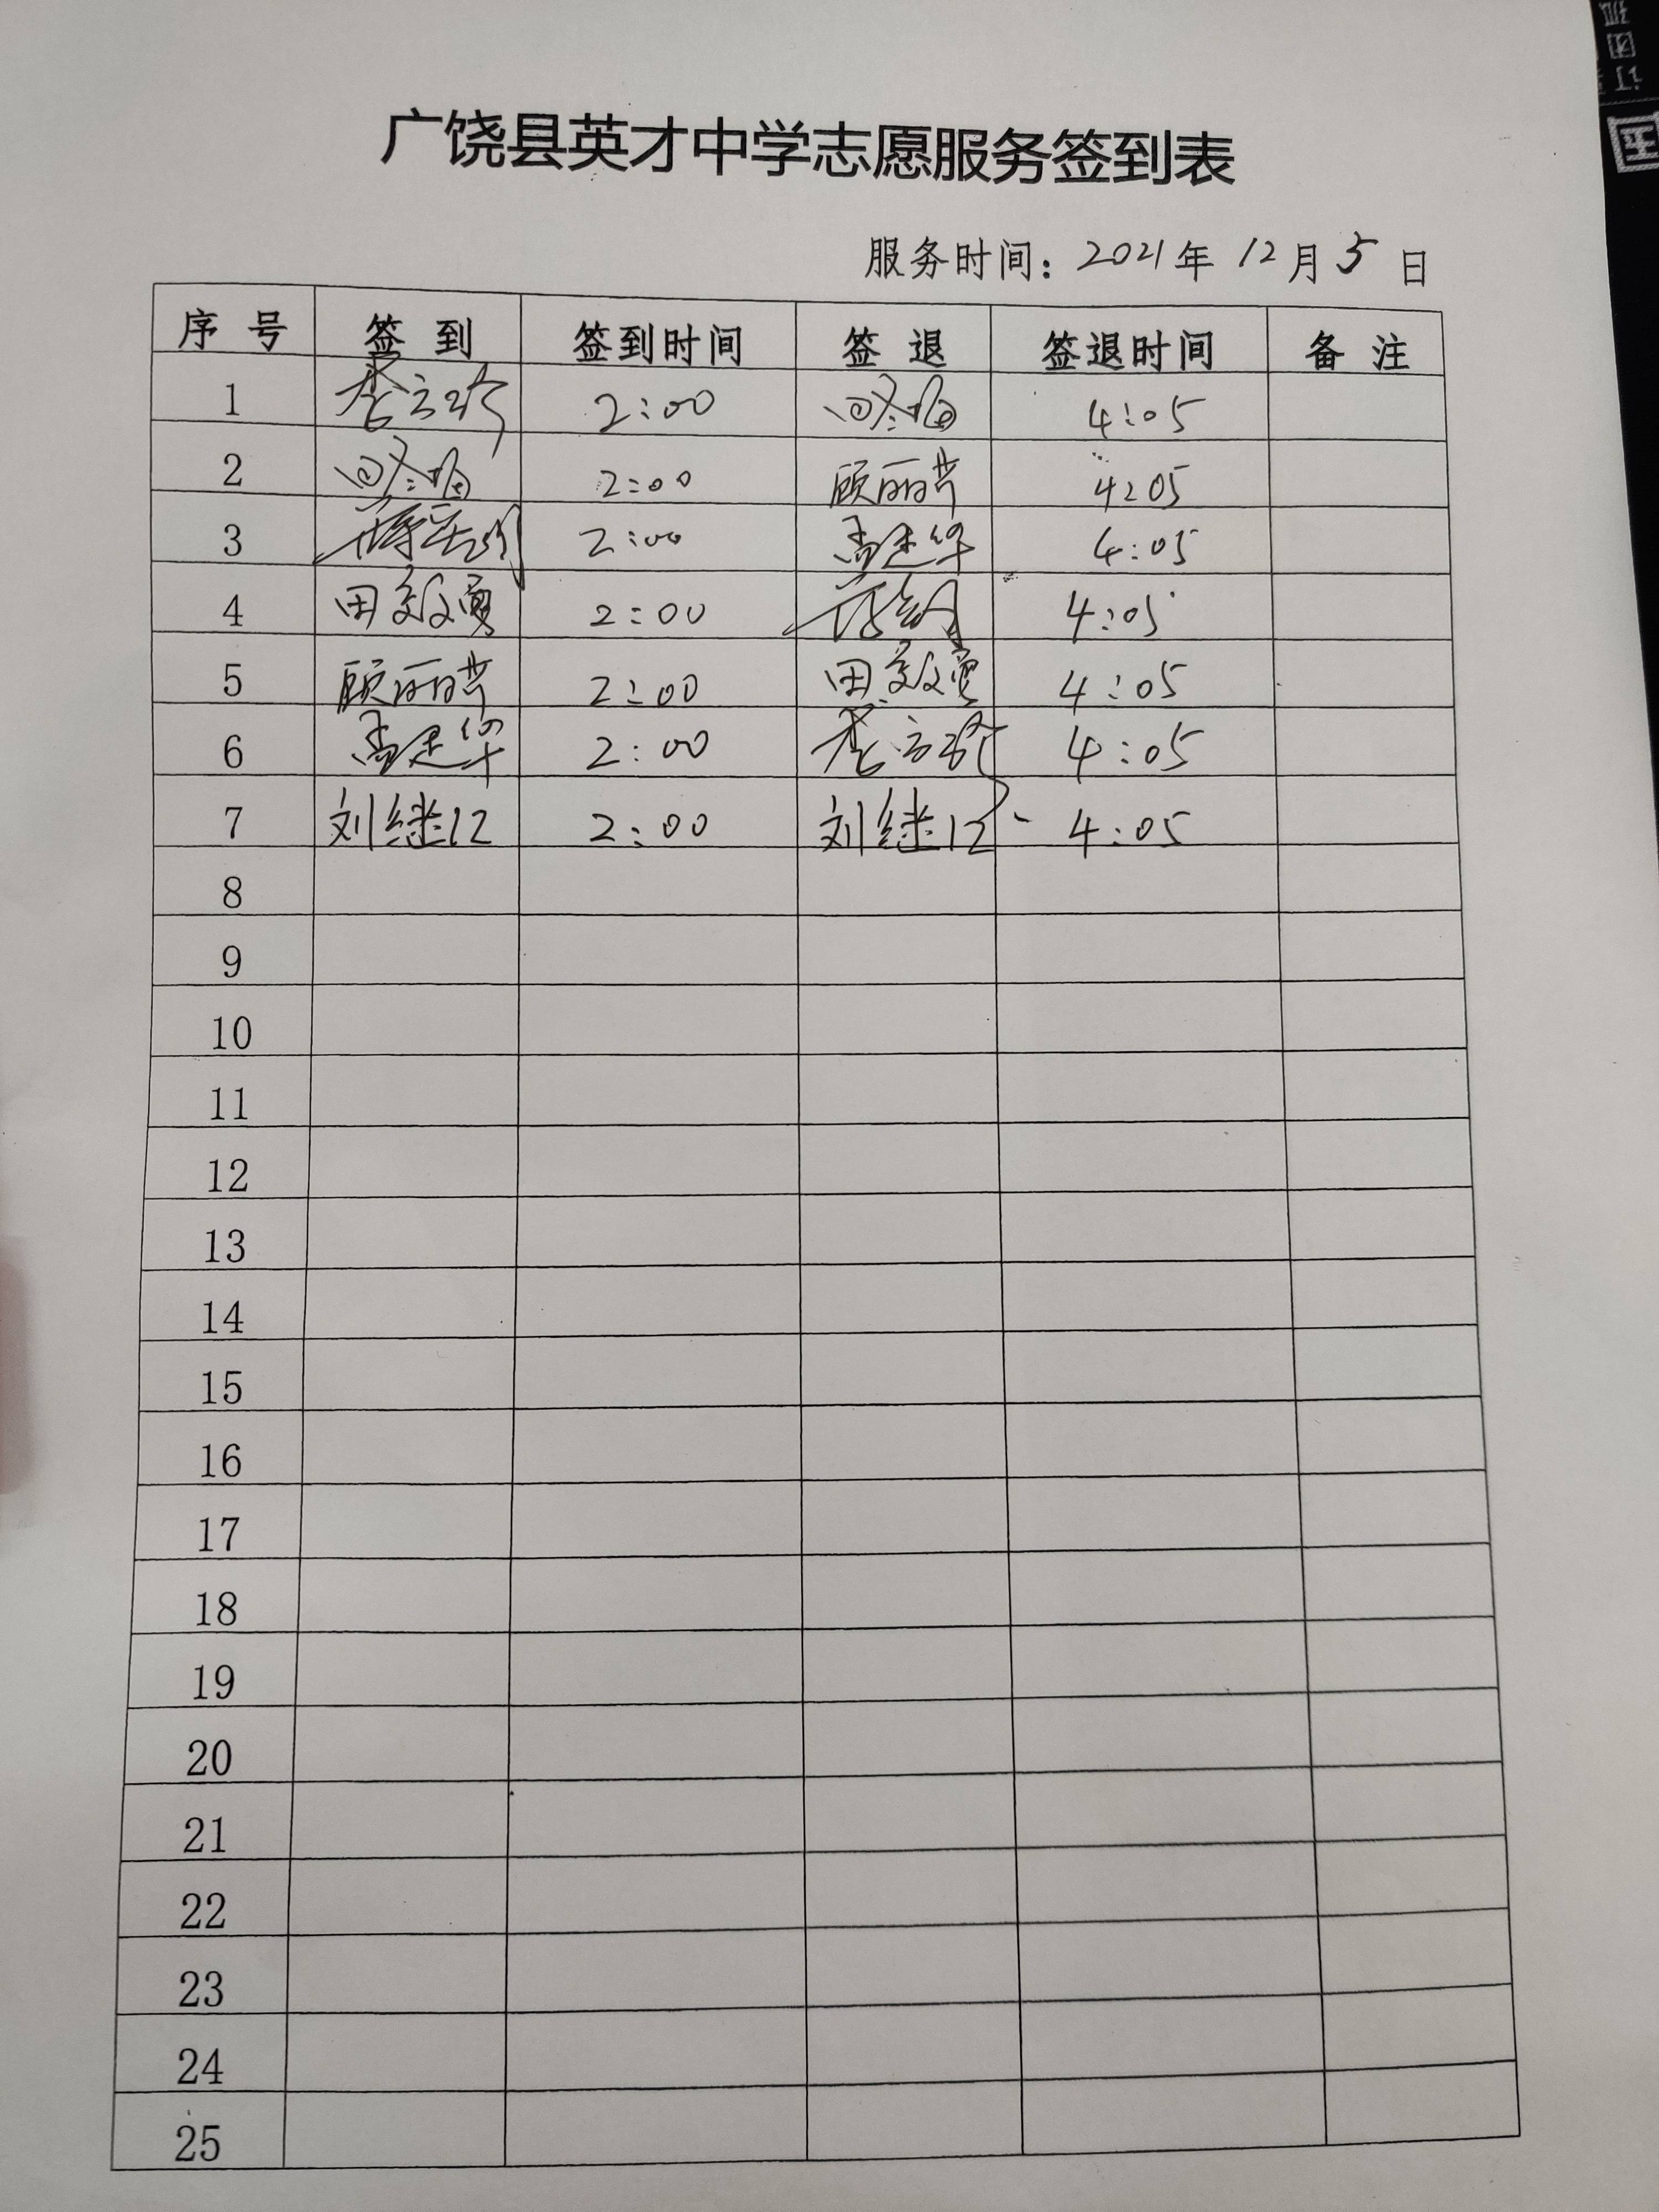 广饶县英才中学志愿服务签到表
服务时间：2021年12月5日
序号 签到 签到时间 签退 签退时间 备注
1 2:00 4:05
2 2:00 4:05
3 2:00 孟建华 4:05
4 田敬勇 2:00 4:05
5 2:00 田敬勇 4:05
6 孟建华 2:00 4:05
7 刘继江 2:00 刘继江 4:05
8
9
10
11
12
13
14
15
16
17
18
19
20
21
22
23
24
25